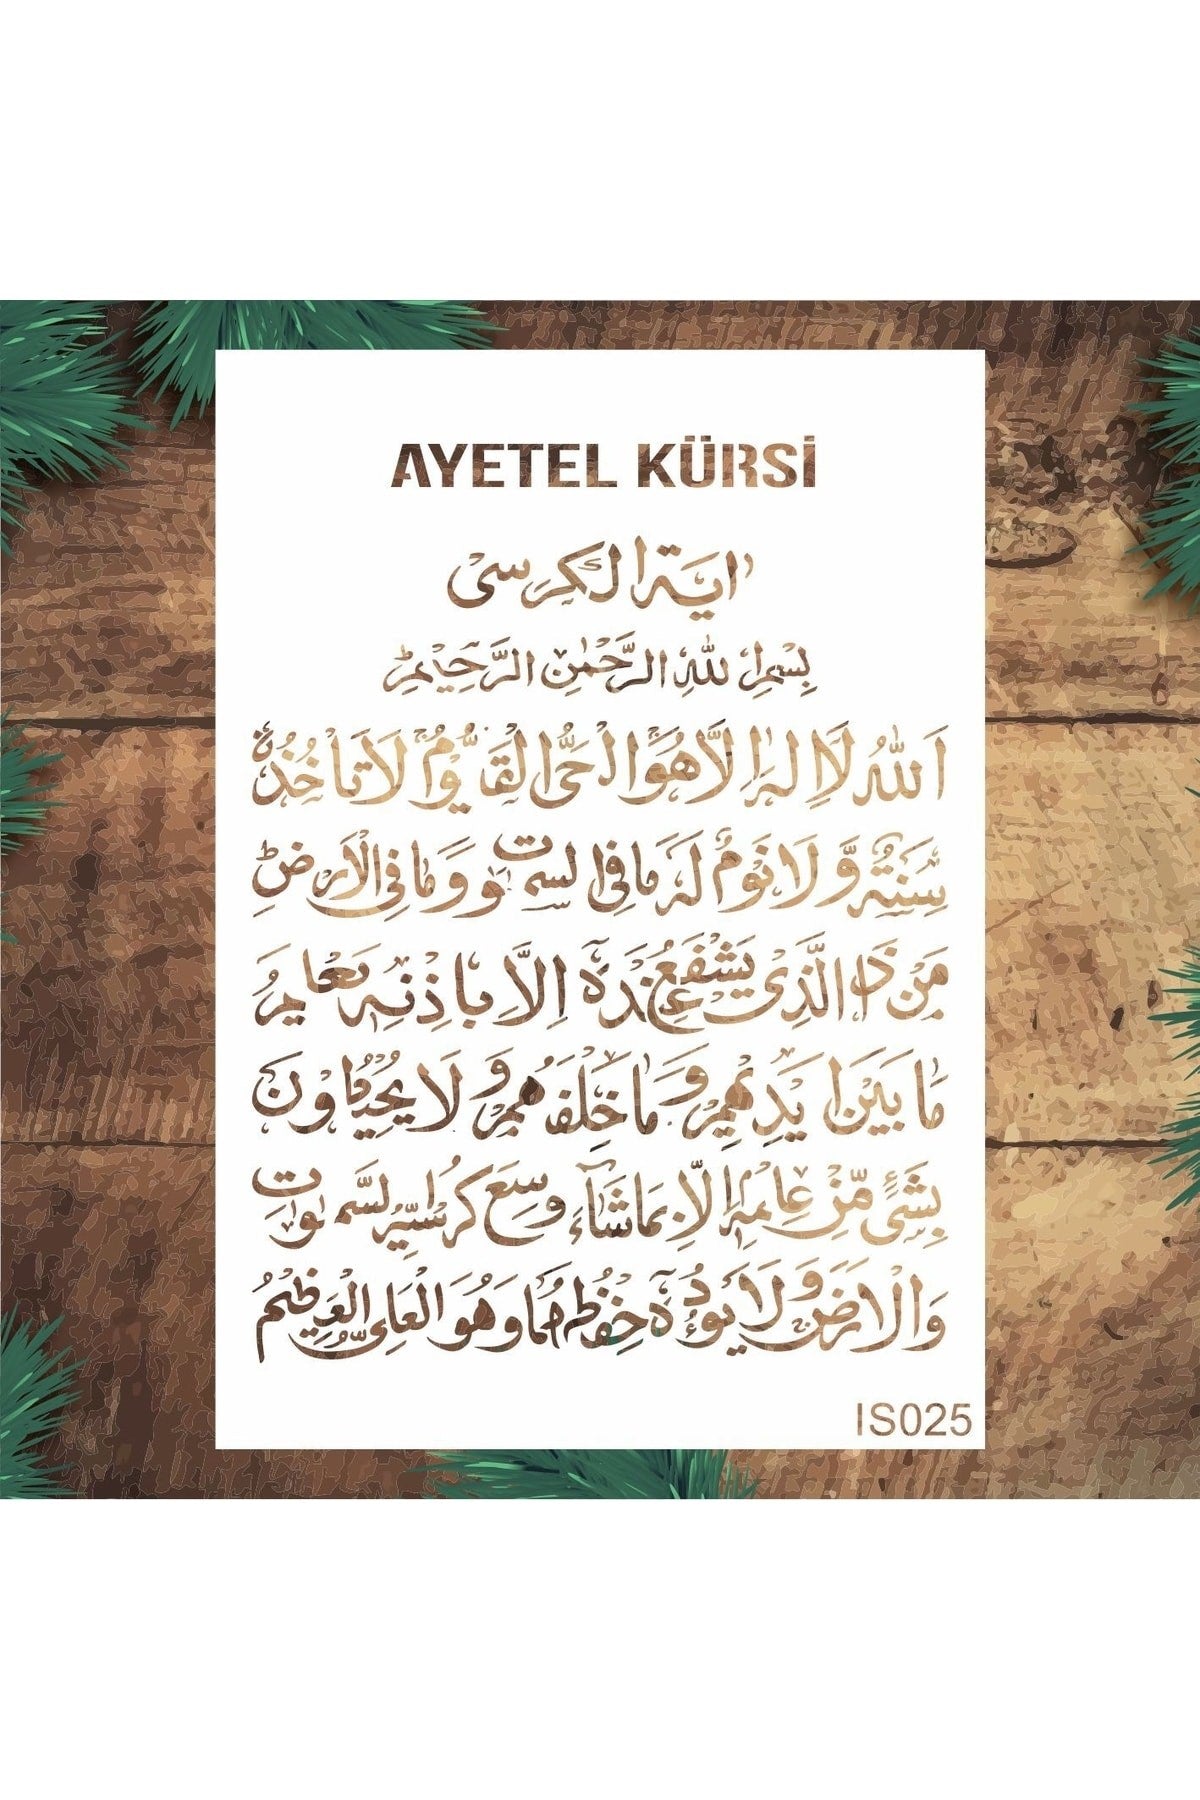 AYETEL KÜRSİ
اية الكرسى
بِسْمِ اللهِ الرَّحْمٰنِ الرَّحِيْمِ
اَللهُ لَا اِلٰهَ اِلَّا هُوَ اَلْحَيُّ الْقَيُّوْمُ لَا تَاْخُذُهٗ
سِنَةٌ وَّلَا نَوْمٌ لَهٗ مَا فِى السَّمٰوٰتِ وَمَا فِى الْاَرْضِ
مَنْ ذَا الَّذِىْ يَشْفَعُ عِنْدَهٗ اِلَّا بِاِذْنِهٖ يَعْلَمُ
مَا بَيْنَ اَيْدِيْهِمْ وَمَا خَلْفَهُمْ وَلَا يُحِيْطُوْنَ
بِشَيْءٍ مِّنْ عِلْمِهٖ اِلَّا بِمَا شَآءَ وَسِعَ كُرْسِيُّهُ السَّمٰوٰتِ
وَالْاَرْضَ وَلَا يَـُٔوْدُهٗ حِفْظُهُمَا وَهُوَ الْعَلِىُّ الْعَظِيْمُ
IS025